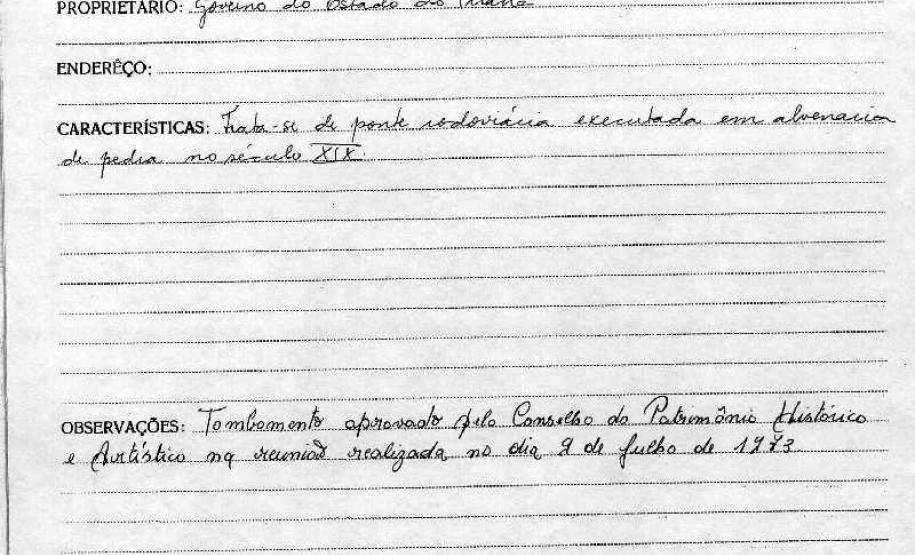 PROPRIETÁRIO: Governo do Estado do Paraná
ENDERÊÇO:
CARACTERÍSTICAS: Trata-se de ponte rodoviária executada em alvenaria
de pedra no século XIX.
OBSERVAÇÕES: Tombamento aprovado pelo Conselho do Patrimônio Histórico
e Artístico na reunião realizada no dia 9 de julho de 1973